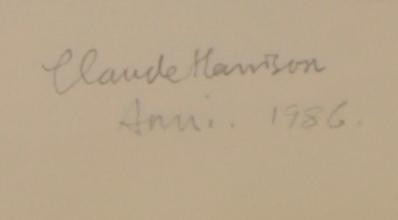 Claude Harrison
Anni. 1986.